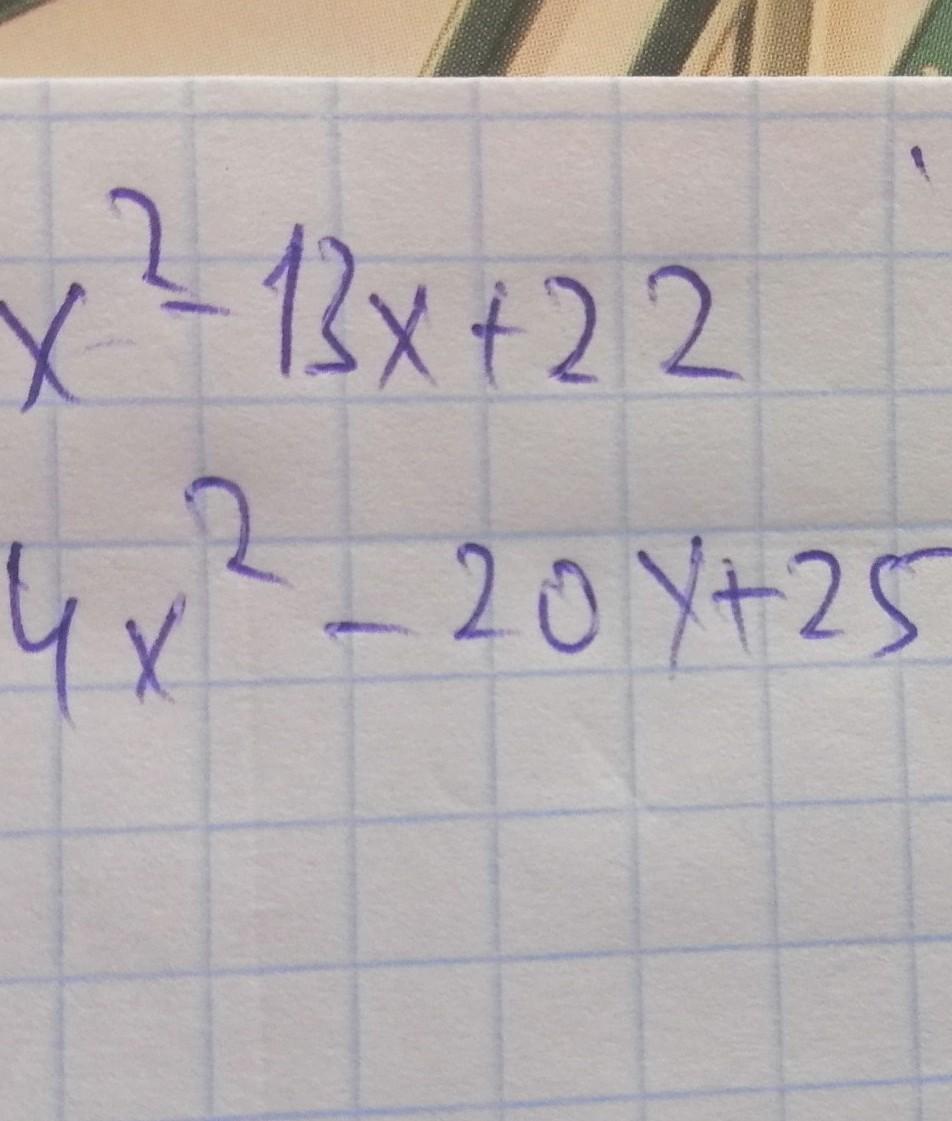 x² - 13x + 22
4x² - 20x + 25